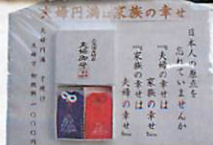 夫婦円満は家族の幸せ
日本人の原点を
忘れていませんか
『夫婦の幸せは
家族の幸せ』
『家族の幸せは
夫婦の幸せ』
夫婦御守
夫婦円満